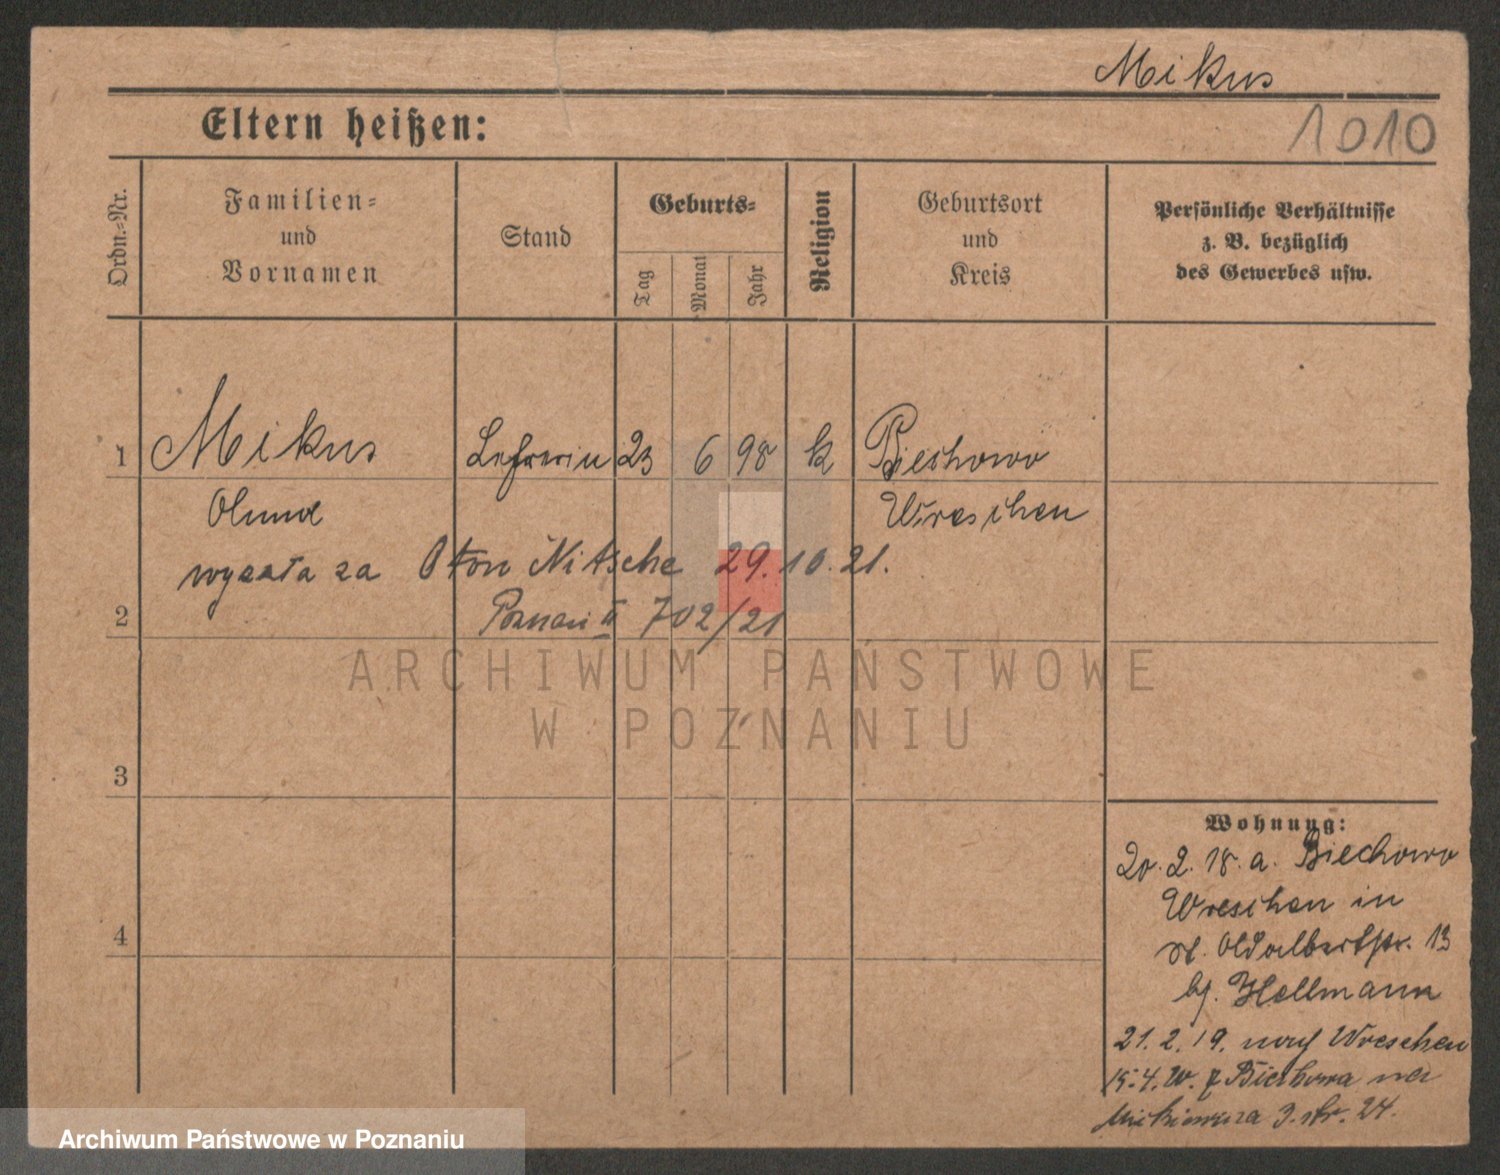 Mikus
Eltern heißen:
1010
Ordn.-Nr.
Familien-
und
Vornamen
Stand
Geburts-
Tag
Monat
Jahr
Religion
Geburtsort
und
Kreis
Persönliche Verhältnisse
z. B. bezüglich
des Gewerbes usw.
1 Mikus 23 6 98 k Biechowo
Wreschen
wyszła za Otton Nitsche 29.10.21.
2 Poznań II 702/21
ARCHIWUM PAŃSTWOWE
W POZNANIU
3
4
Wohnung:
20.2.18. a. Biechowo
Wreschen in
13
bj. Hellmann
21.2.19. nach Wreschen
15.4. z Biechowa na
Mickiewicza 24.
Archiwum Państwowe w Poznaniu